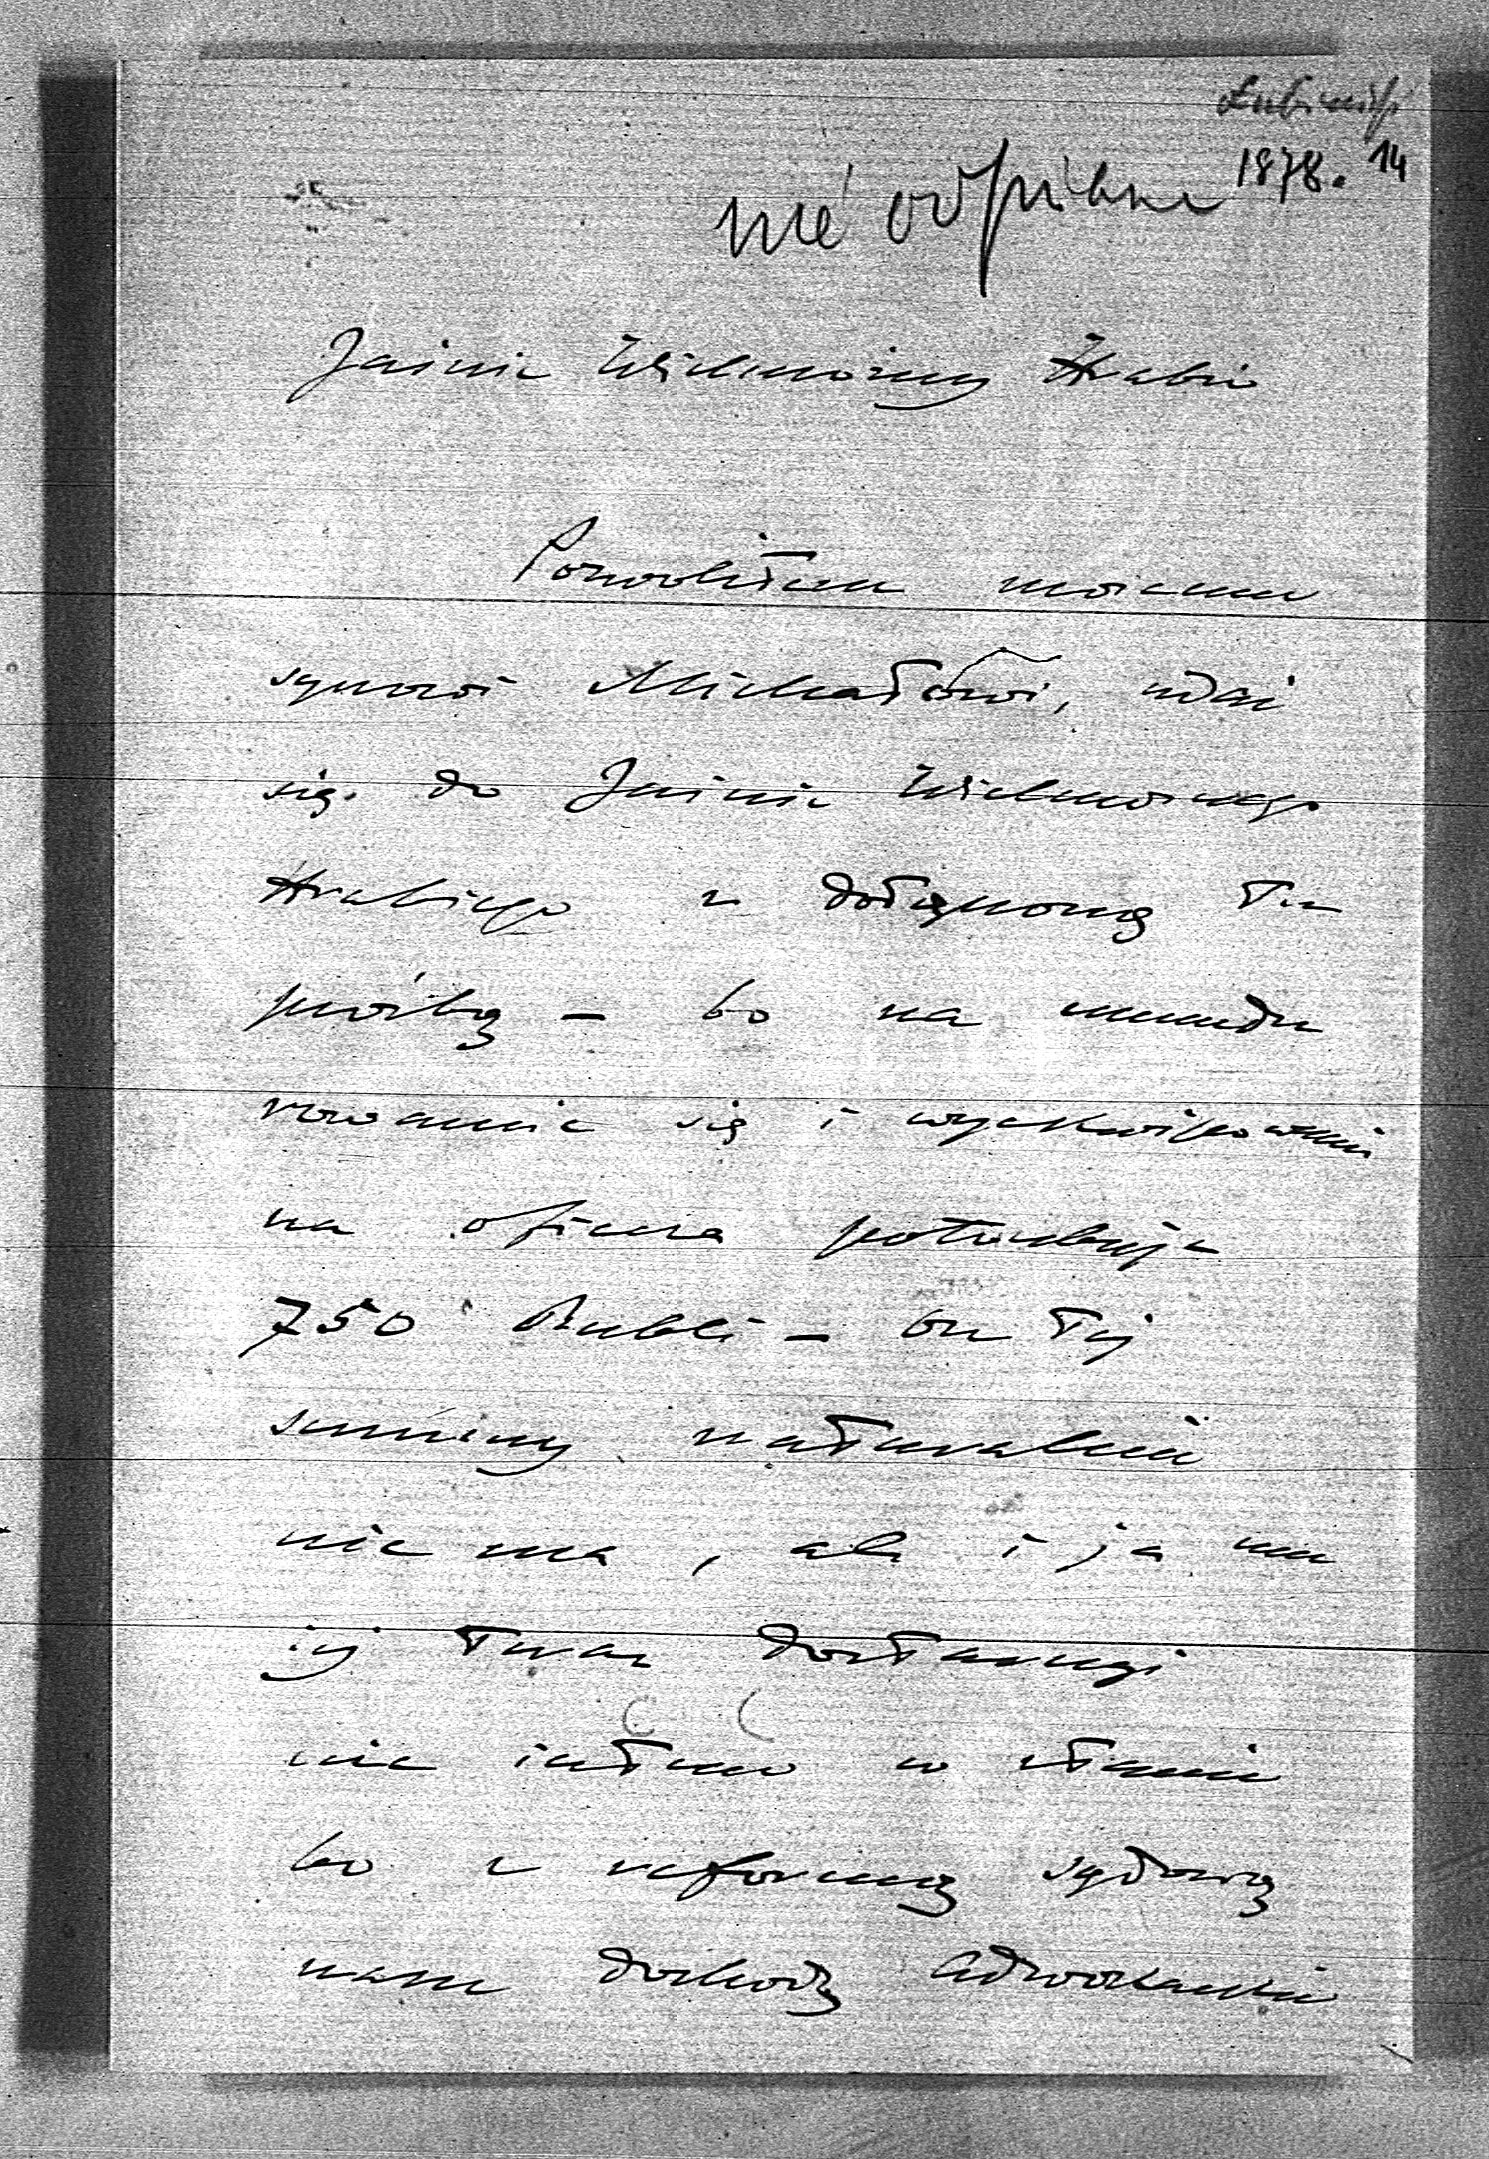 1878. 14
nie odpisane
Jaśnie Wielmożny Hrabio
Pozwoliłem moiemu
synowi Michałowi, udać
się do Jaśnie Wielmożnego
Hrabiego z dołączoną tu
prośbą – bo na mundu
rowanie się i wyekwipowanie
na oficera potrzebuje
750 Rubli – on tej
summy naturalnie
nie ma, ale i ja mu
jej teraz dostarczyć
nie jestem w stanie
bo z reformą sądową
nasze dochody Adwokackie